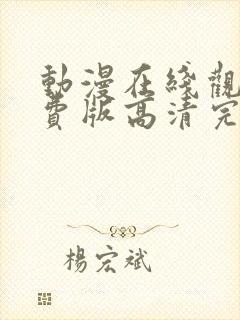 動漫在綫觀
費版高清完
楊宏斌